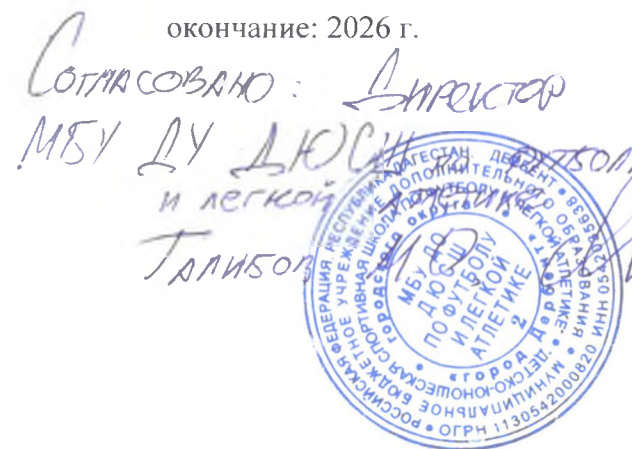 окончание: 2026 г.
Согласовано: Директор
МБУ ДУ ДЮСШ по футболу
и легкой атлетике
Талибов М.Ф.
РОССИЙСКАЯ ФЕДЕРАЦИЯ РЕСПУБЛИКА ДАГЕСТАН ДЕРБЕНТ
МУНИЦИПАЛЬНОЕ БЮДЖЕТНОЕ УЧРЕЖДЕНИЕ ДОПОЛНИТЕЛЬНОГО ОБРАЗОВАНИЯ
ДЕТСКО-ЮНОШЕСКАЯ СПОРТИВНАЯ ШКОЛА ПО ФУТБОЛУ И ЛЕГКОЙ АТЛЕТИКЕ
городского округа "город Дербент"
ОГРН 1130542000820 ИНН
МБУ ДО
ДЮСШ
ПО ФУТБОЛУ
И ЛЕГКОЙ
АТЛЕТИКЕ
2